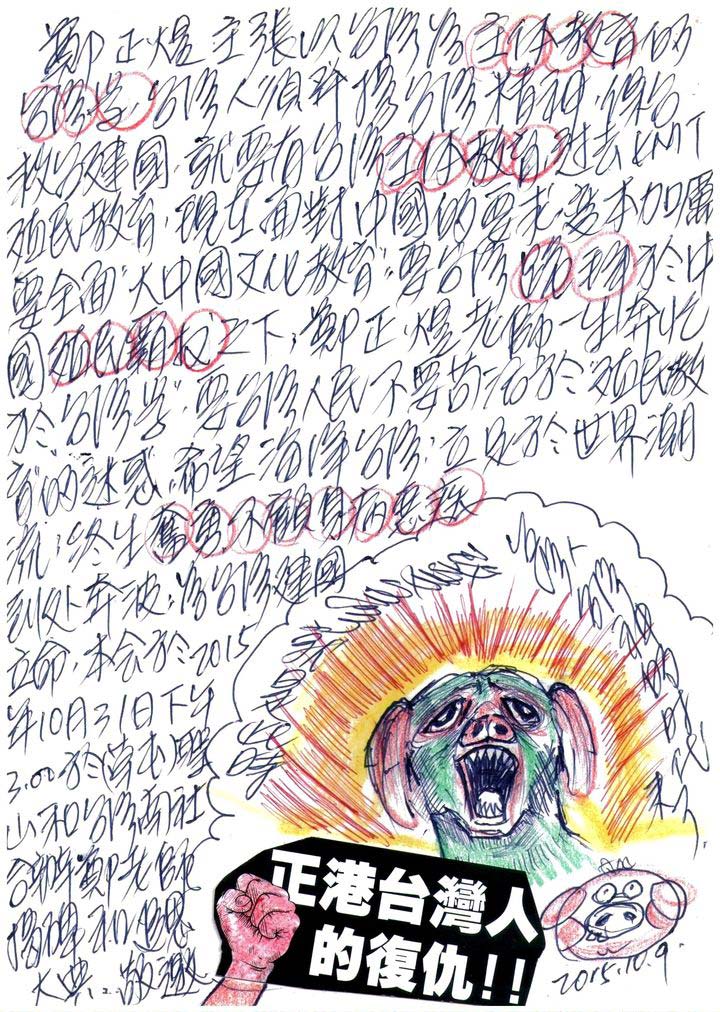 鄭正煜主張以台灣為主体教育的
台灣學,台灣人須群揚台灣精神,保台
救台建國,就要有台灣主体教育,過去KMT
殖民教育,現在面對中國的要求,變本加厲
要全面"大中國文化教育"要台灣於中
國殖民霸权之下,鄭正煜老師一生奔忙
於"台灣學",要台灣人民不要苟活於"殖民教
育"的迷惑,希望海洋台灣,立足於世界潮
流,終生奮勇不顧身病惡
到处奔波,為台灣建國
立命,本会於2015
年10月31日下午
3.00於
山和台灣南社
合辦鄭老師
揭碑和追思
大典……敬邀
正港台灣人
的復仇!!
2015.10.9.